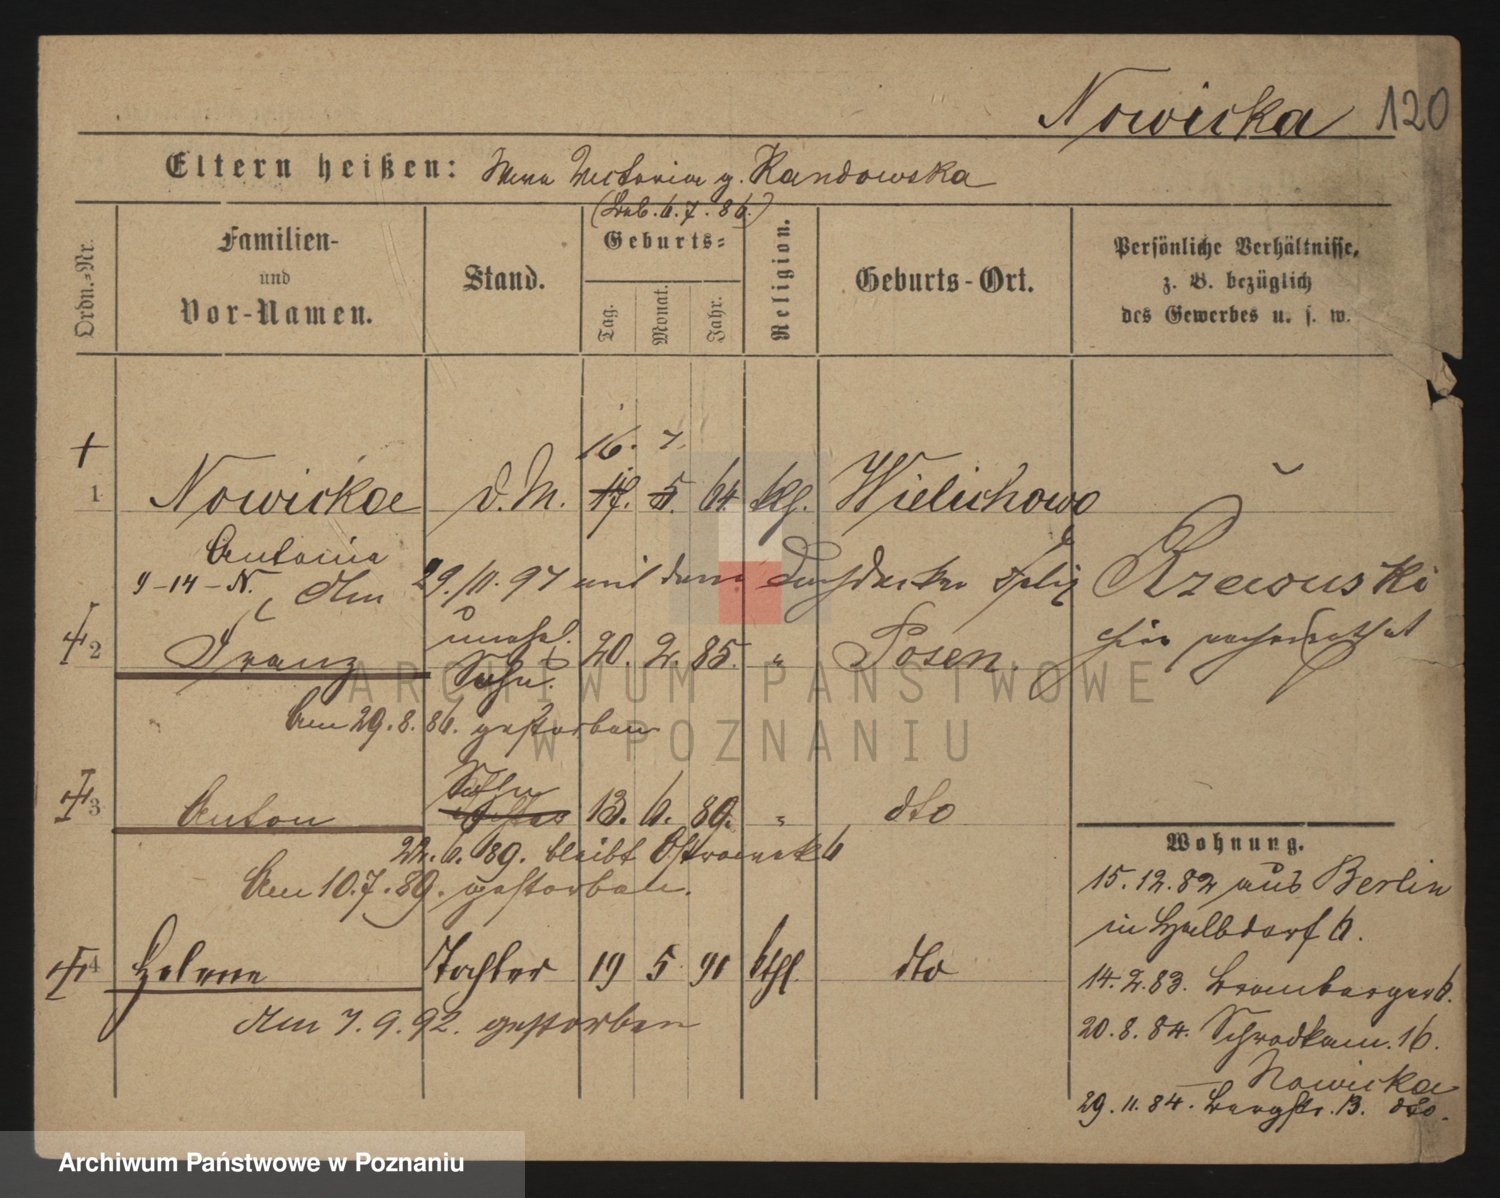 Nowicka 120
Eltern heißen: Victoria g. Kandowska
(Geb. 6.7.86.)
Ordn.-Nr.
Familien-
und
Vor-Namen.
Stand.
Geburts-
Tag.
Monat.
Jahr.
Religion.
Geburts-Ort.
Persönliche Verhältnisse,
z. B. bezüglich
des Gewerbes u. s. w.
16. 7.
1 Nowicka d.M. 17. 5. 64. kh. Wielichowo
Antonie
9-14-N. Am 29./11. 97 mit dem Dachdecker Felix Rzewuski
hier verheirathet
2 Franz unehel. Sohn. 20. 2. 85. " Posen.
Am 29.8.86. gestorben
3 Anton Sohn 13. 6. 89. " dto
22. 6. 89. bleibt Ostrowek 6
Am 10.7.89. gestorben.
4 Helene Tochter 19 5 91 kthl. dto
Am 7.9.92. gestorben
Wohnung.
15.12.82 aus Berlin
in Halbdorf 6.
14.2.83. Bromberger 6.
20.8.84. Schrodkam. 16.
Nowicka
29.11.84. Bergstr. 13. dto.
ARCHIWUM PAŃSTWOWE
W POZNANIU
Archiwum Państwowe w Poznaniu